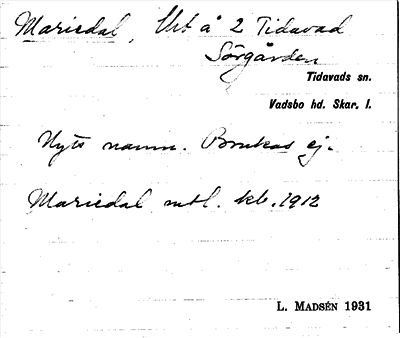 Mariedal, Urt å 2 Tidavad
Sörgården
Tidavads sn.
Vadsbo hd. Skar. l.
Nytt namn. Brukas ej.
Mariedal mtl. kb. 1912
L. MADSÉN 1931